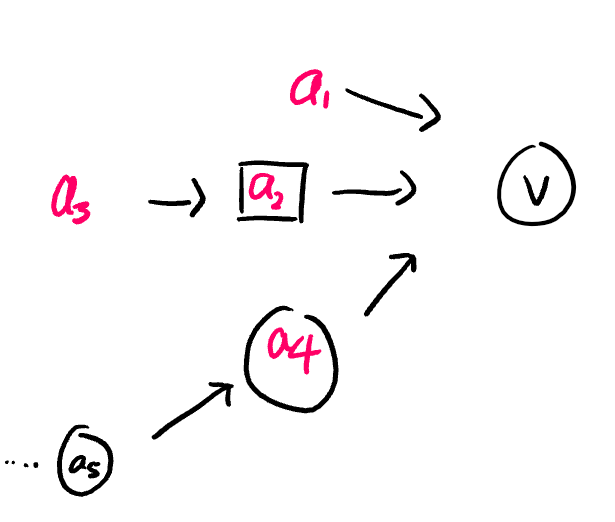 a₁
a₃ a₂ v
a4
.... a₅